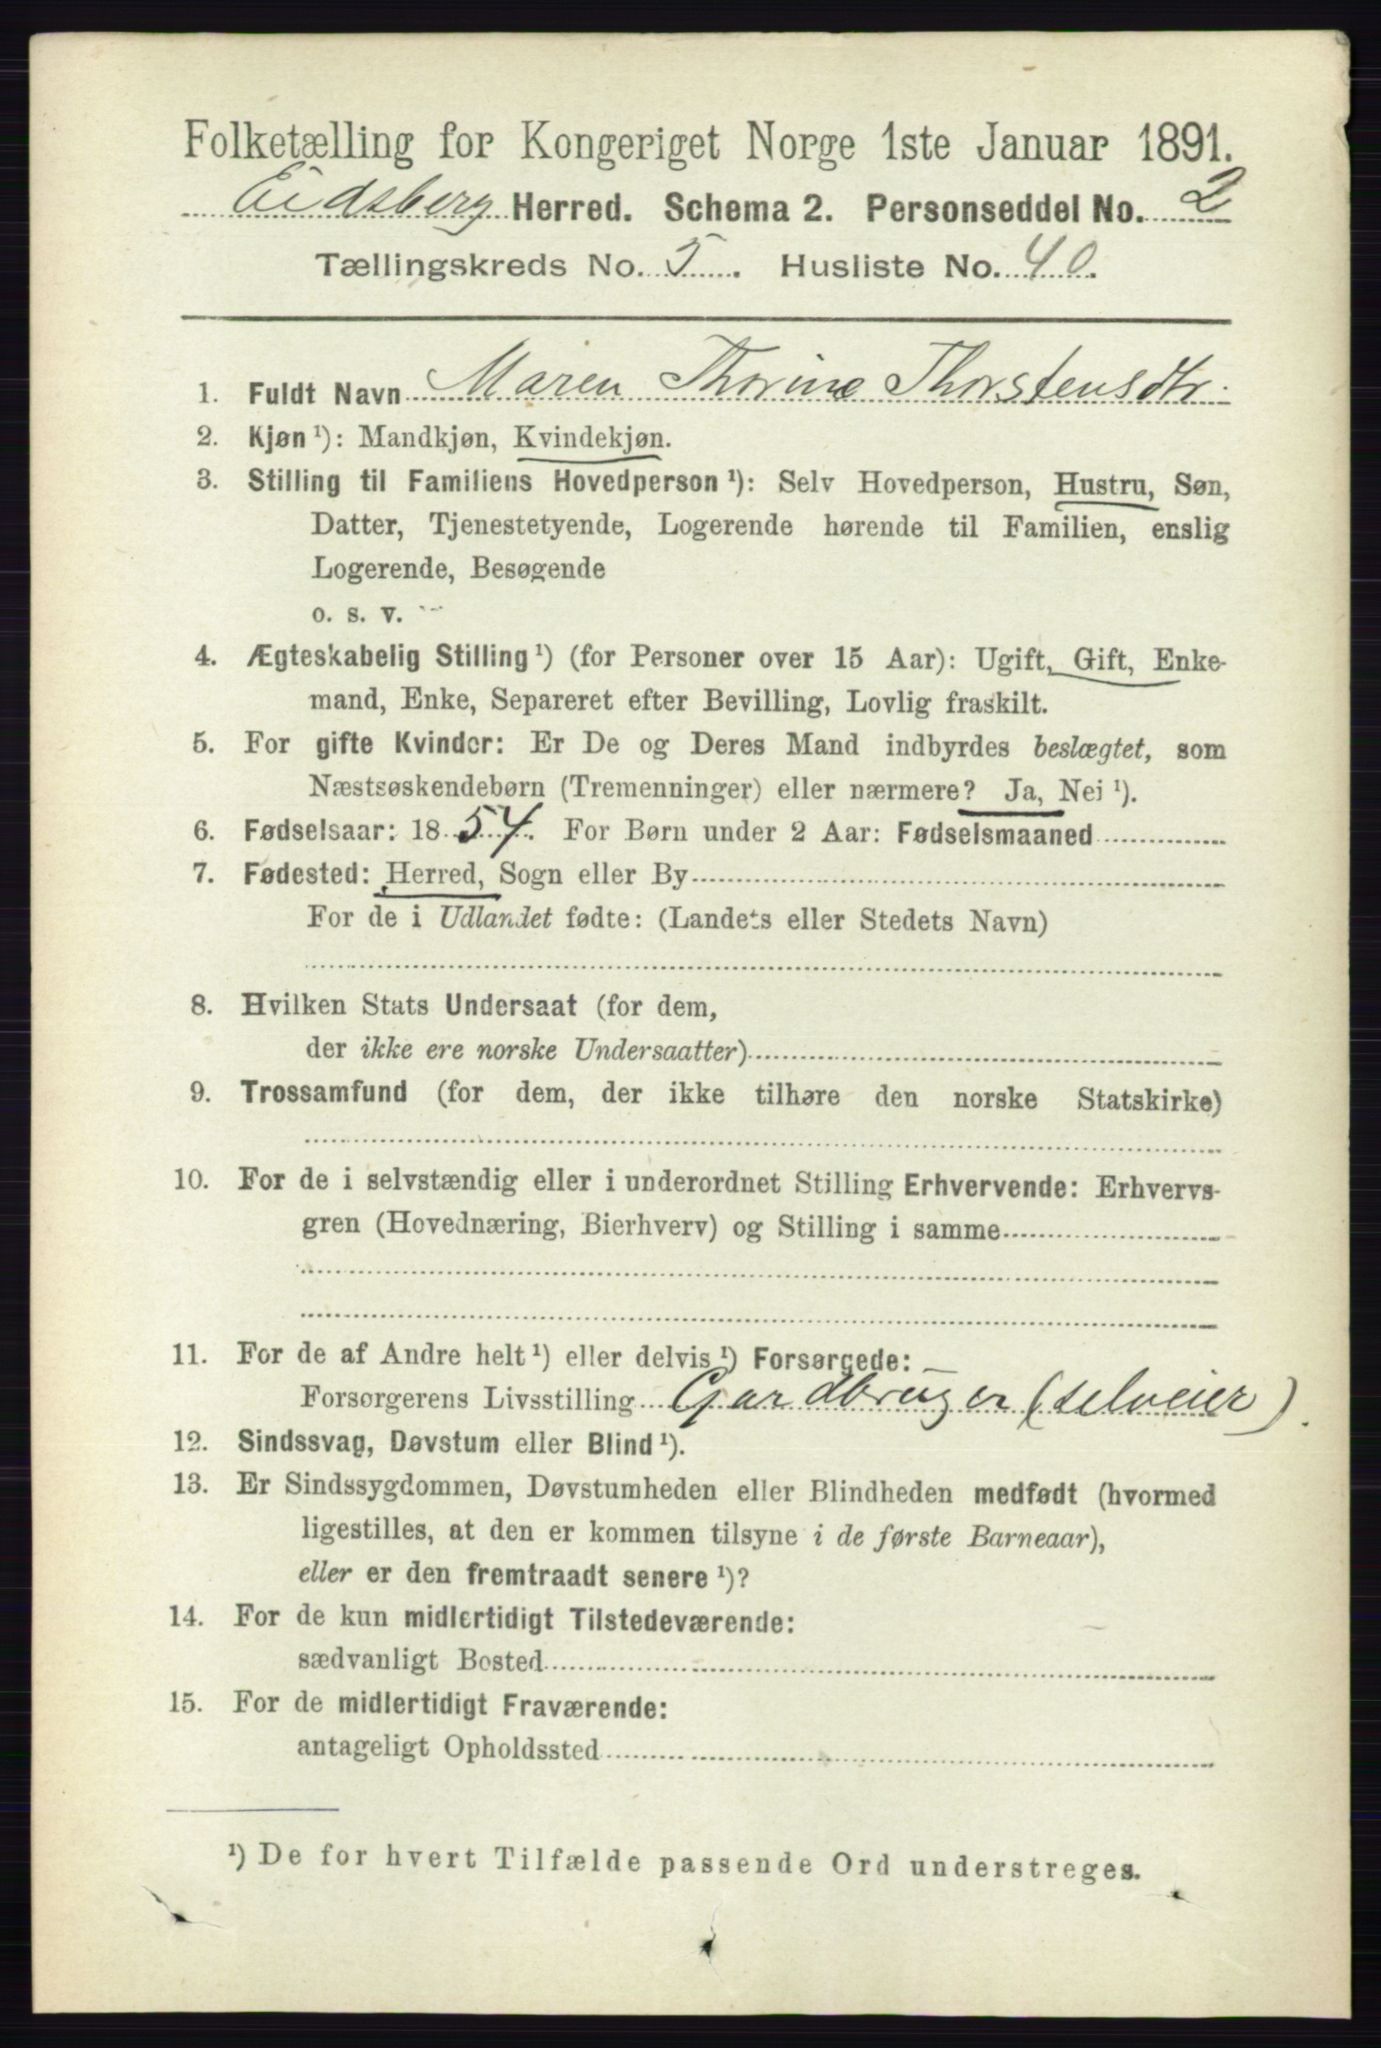 Folketælling for Kongeriget Norge 1ste Januar 1891.
Eidsberg Herred. Schema 2. Personseddel No. 2
Tællingskreds No. 5. Husliste No. 40.
1. Fuldt Navn Maren Thorine Thorstensdtr.
2. Kjøn ¹): Mandkjøn, Kvindekjøn.
3. Stilling til Familiens Hovedperson ¹): Selv Hovedperson, Hustru, Søn,
Datter, Tjenestetyende, Logerende hørende til Familien, enslig
Logerende, Besøgende
o. s. v.
4. Ægteskabelig Stilling ¹) (for Personer over 15 Aar): Ugift, Gift, Enke-
mand, Enke, Separeret efter Bevilling, Lovlig fraskilt.
5. For gifte Kvinder: Er De og Deres Mand indbyrdes beslægtet, som
Næstsøskendebørn (Tremenninger) eller nærmere? Ja, Nei ¹).
6. Fødselsaar: 1854. For Børn under 2 Aar: Fødselsmaaned
7. Fødested: Herred, Sogn eller By
For de i Udlandet fødte: (Landets eller Stedets Navn)
8. Hvilken Stats Undersaat (for dem,
der ikke ere norske Undersaatter)
9. Trossamfund (for dem, der ikke tilhøre den norske Statskirke)
10. For de i selvstændig eller i underordnet Stilling Erhvervende: Erhvervs-
gren (Hovednæring, Bierhverv) og Stilling i samme
11. For de af Andre helt ¹) eller delvis ¹) Forsørgede:
Forsørgerens Livsstilling Gardbruger (selveier).
12. Sindssvag, Døvstum eller Blind ¹).
13. Er Sindssygdommen, Døvstumheden eller Blindheden medfødt (hvormed
ligestilles, at den er kommen tilsyne i de første Barneaar),
eller er den fremtraadt senere ¹)?
14. For de kun midlertidigt Tilstedeværende:
sædvanligt Bosted
15. For de midlertidigt Fraværende:
antageligt Opholdssted
¹) De for hvert Tilfælde passende Ord understreges.